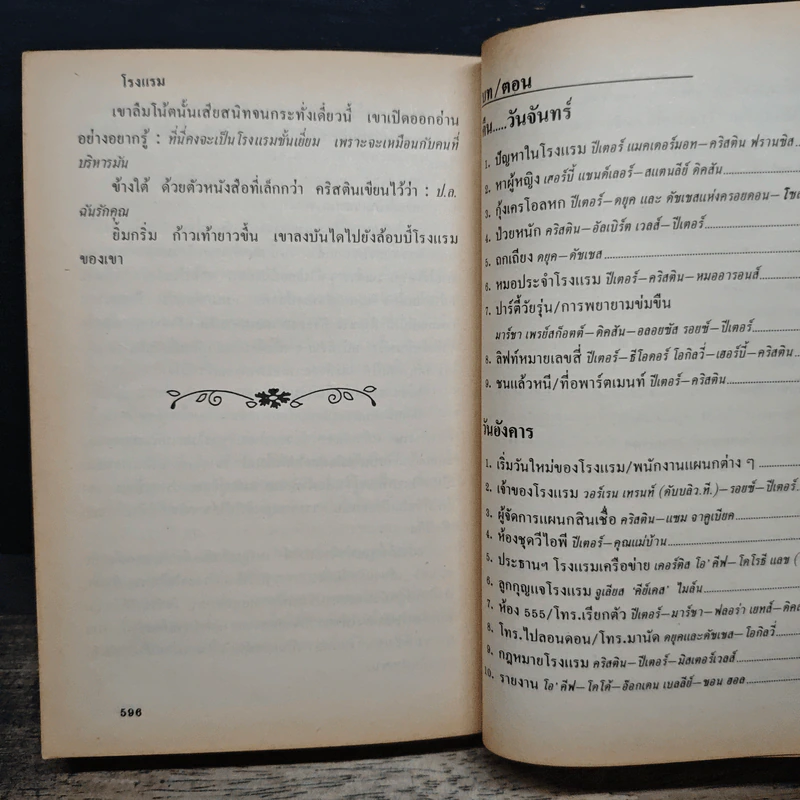 โรงแรม
เขาลืมโน้ตนั้นเสียสนิทจนกระทั่งเดี๋ยวนี้ เขาเปิดออกอ่าน
อย่างอยากรู้ : ที่นี่คงจะเป็นโรงแรมชั้นเยี่ยม เพราะจะเหมือนกับคนที่
บริหารมัน
ข้างใต้ ด้วยตัวหนังสือที่เล็กกว่า คริสตินเขียนไว้ว่า : ป.ล.
ฉันรักคุณ
ยิ้มกริ่ม ก้าวเท้ายาวขึ้น เขาลงบันไดไปยังล้อบบี้โรงแรม
ของเขา
596
บท/ตอน
คืน.....วันจันทร์
1. ปัญหาในโรงแรม ปีเตอร์ แมคเดอร์มอท—คริสติน ฟรานซิส
2. หาผู้หญิง เฮอร์บี้ แชนด์เลอร์—สแตนลีย์ ดิคสัน
3. กุ้งเครโอลหก ปีเตอร์—ดยุค และ ดัชเชสแห่งครอยดอน—โซล
4. ป่วยหนัก คริสติน—อัลเบิร์ต เวลส์—ปีเตอร์
5. ถกเถียง ดยุค—ดัชเชส
6. หมอประจำโรงแรม ปีเตอร์—คริสติน—หมออารอนส์
7. ปาร์ตี้วัยรุ่น/การพยายามข่มขืน
มาร์ชา เพรย์สก็อตต์—ดิคสัน—อลอยซัส รอยซ์—ปีเตอร์
8. ลิฟท์หมายเลขสี่ ปีเตอร์—ธีโอดอร์ โอกิลวี่—เฮอร์บี้—คริสติน
9. ชนแล้วหนี/ที่อพาร์ตเมนท์ ปีเตอร์—คริสติน
วันอังคาร
1. เริ่มวันใหม่ของโรงแรม/พนักงานแผนกต่าง ๆ
2. เจ้าของโรงแรม วอร์เรน เทรนท์ (ดับบลิว.ที.)—รอยซ์—ปีเตอร์
3. ผู้จัดการแผนกสินเชื่อ คริสติน—แซม จาคูเบียค
4. ห้องชุดวีไอพี ปีเตอร์—คุณแม่บ้าน
5. ประธานฯ โรงแรมเครือข่าย เคอร์ติส โอ'คีฟ—โดโรธี แลช (
6. ลูกกุญแจโรงแรม จูเลียส 'คีย์เคส' ไมล์น
7. ห้อง 555/โทร.เรียกตัว ปีเตอร์—มาร์ชา—ฟลอร่า เยทส์—ดิคสั
8. โทร.ไปลอนดอน/โทร.มานัด ดยุคและดัชเชส—โอกิลวี่
9. กฎหมายโรงแรม คริสติน—ปีเตอร์—มิสเตอร์เวลส์
10. รายงาน โอ'คีฟ—โดโด้—อ๊อกเดน เบลลีย์—ชอน ฮอล